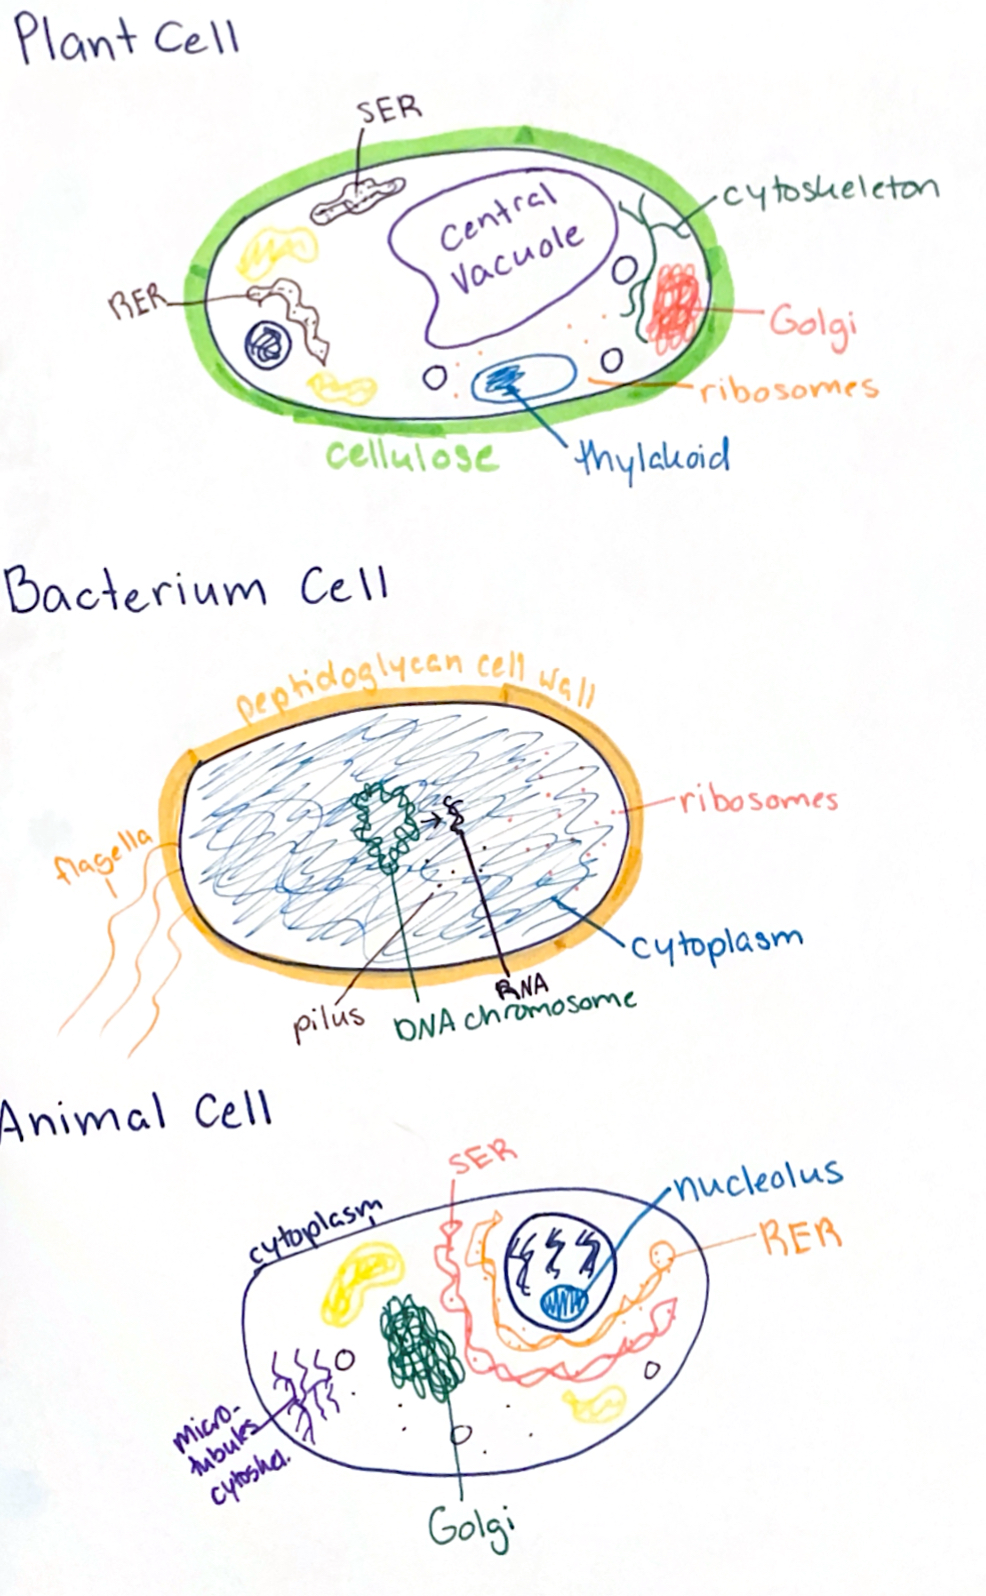 Plant Cell
SER
cytoskeleton
Central
Vacuole
RER
Golgi
ribosomes
cellulose
thylakoid
Bacterium Cell
peptidoglycan cell wall
ribosomes
flagella
cytoplasm
RNA
pilus
DNA chromosome
Animal Cell
SER
nucleolus
cytoplasm
RER
micro-
tubules
cytoske.
Golgi